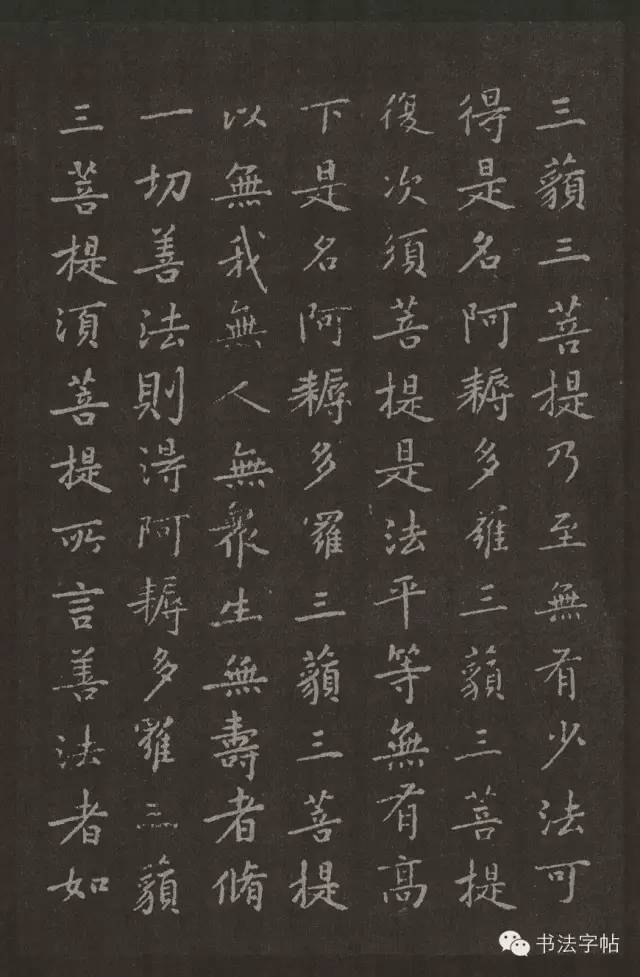 三藐三菩提乃至無有少法可
得是名阿耨多羅三藐三菩提
復次須菩提是法平等無有高
下是名阿耨多羅三藐三菩提
以無我無人無眾生無壽者脩
一切善法則得阿耨多羅三藐
三菩提須菩提所言善法者如
书法字帖